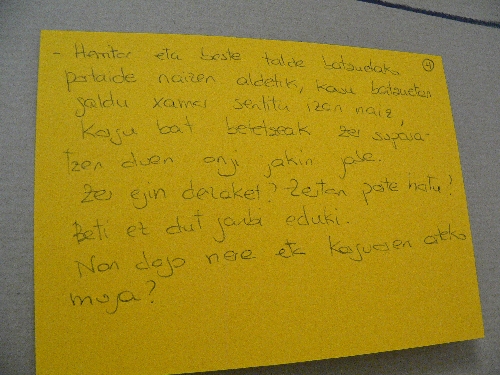 - Herritar eta beste talde batzuetako ④
partaide naizen aldetik, kasu batzuetan
galdu xamar sentitu izan naiz,
Kargu bat betetzeak zer suposa-
tzen duen ongi jakin gabe.
Zer egin dezaket? Zertan parte hartu?
Beti ez dut garbi eduki.
Non dago nere eta karguaren arteko
muga?